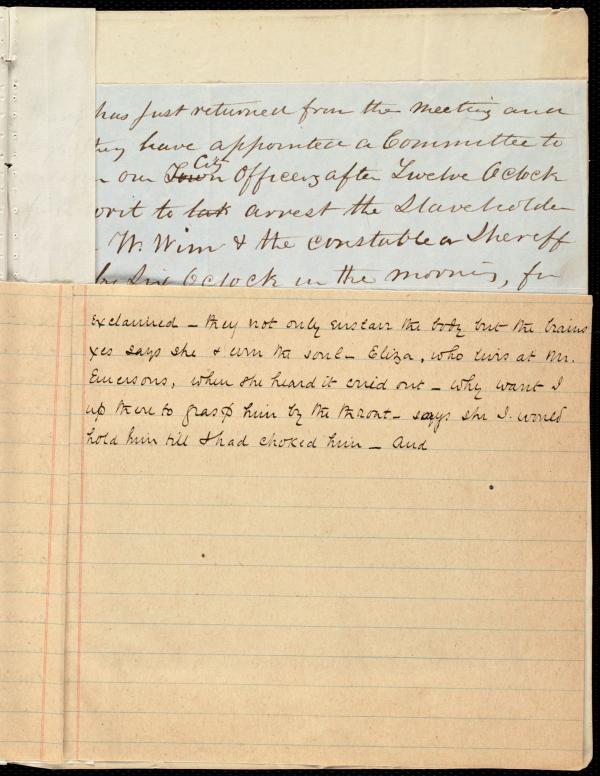 has just returned from the meeting and
they have appointed a Committee to
our Town City Officers after Twelve Oclock
writ to tak arrest the Slaveholder
W. Winn & the constable or Sheriff
by Six Oclock in the morning, for
exclaimed – they not only enslave the body but the brains
yes says she & even the soul – Eliza, who livis at Mr.
Emersons, when she heard it cried out – why want I
up there to grasp him by the throat – says she I would
hold him till I had choked him – And